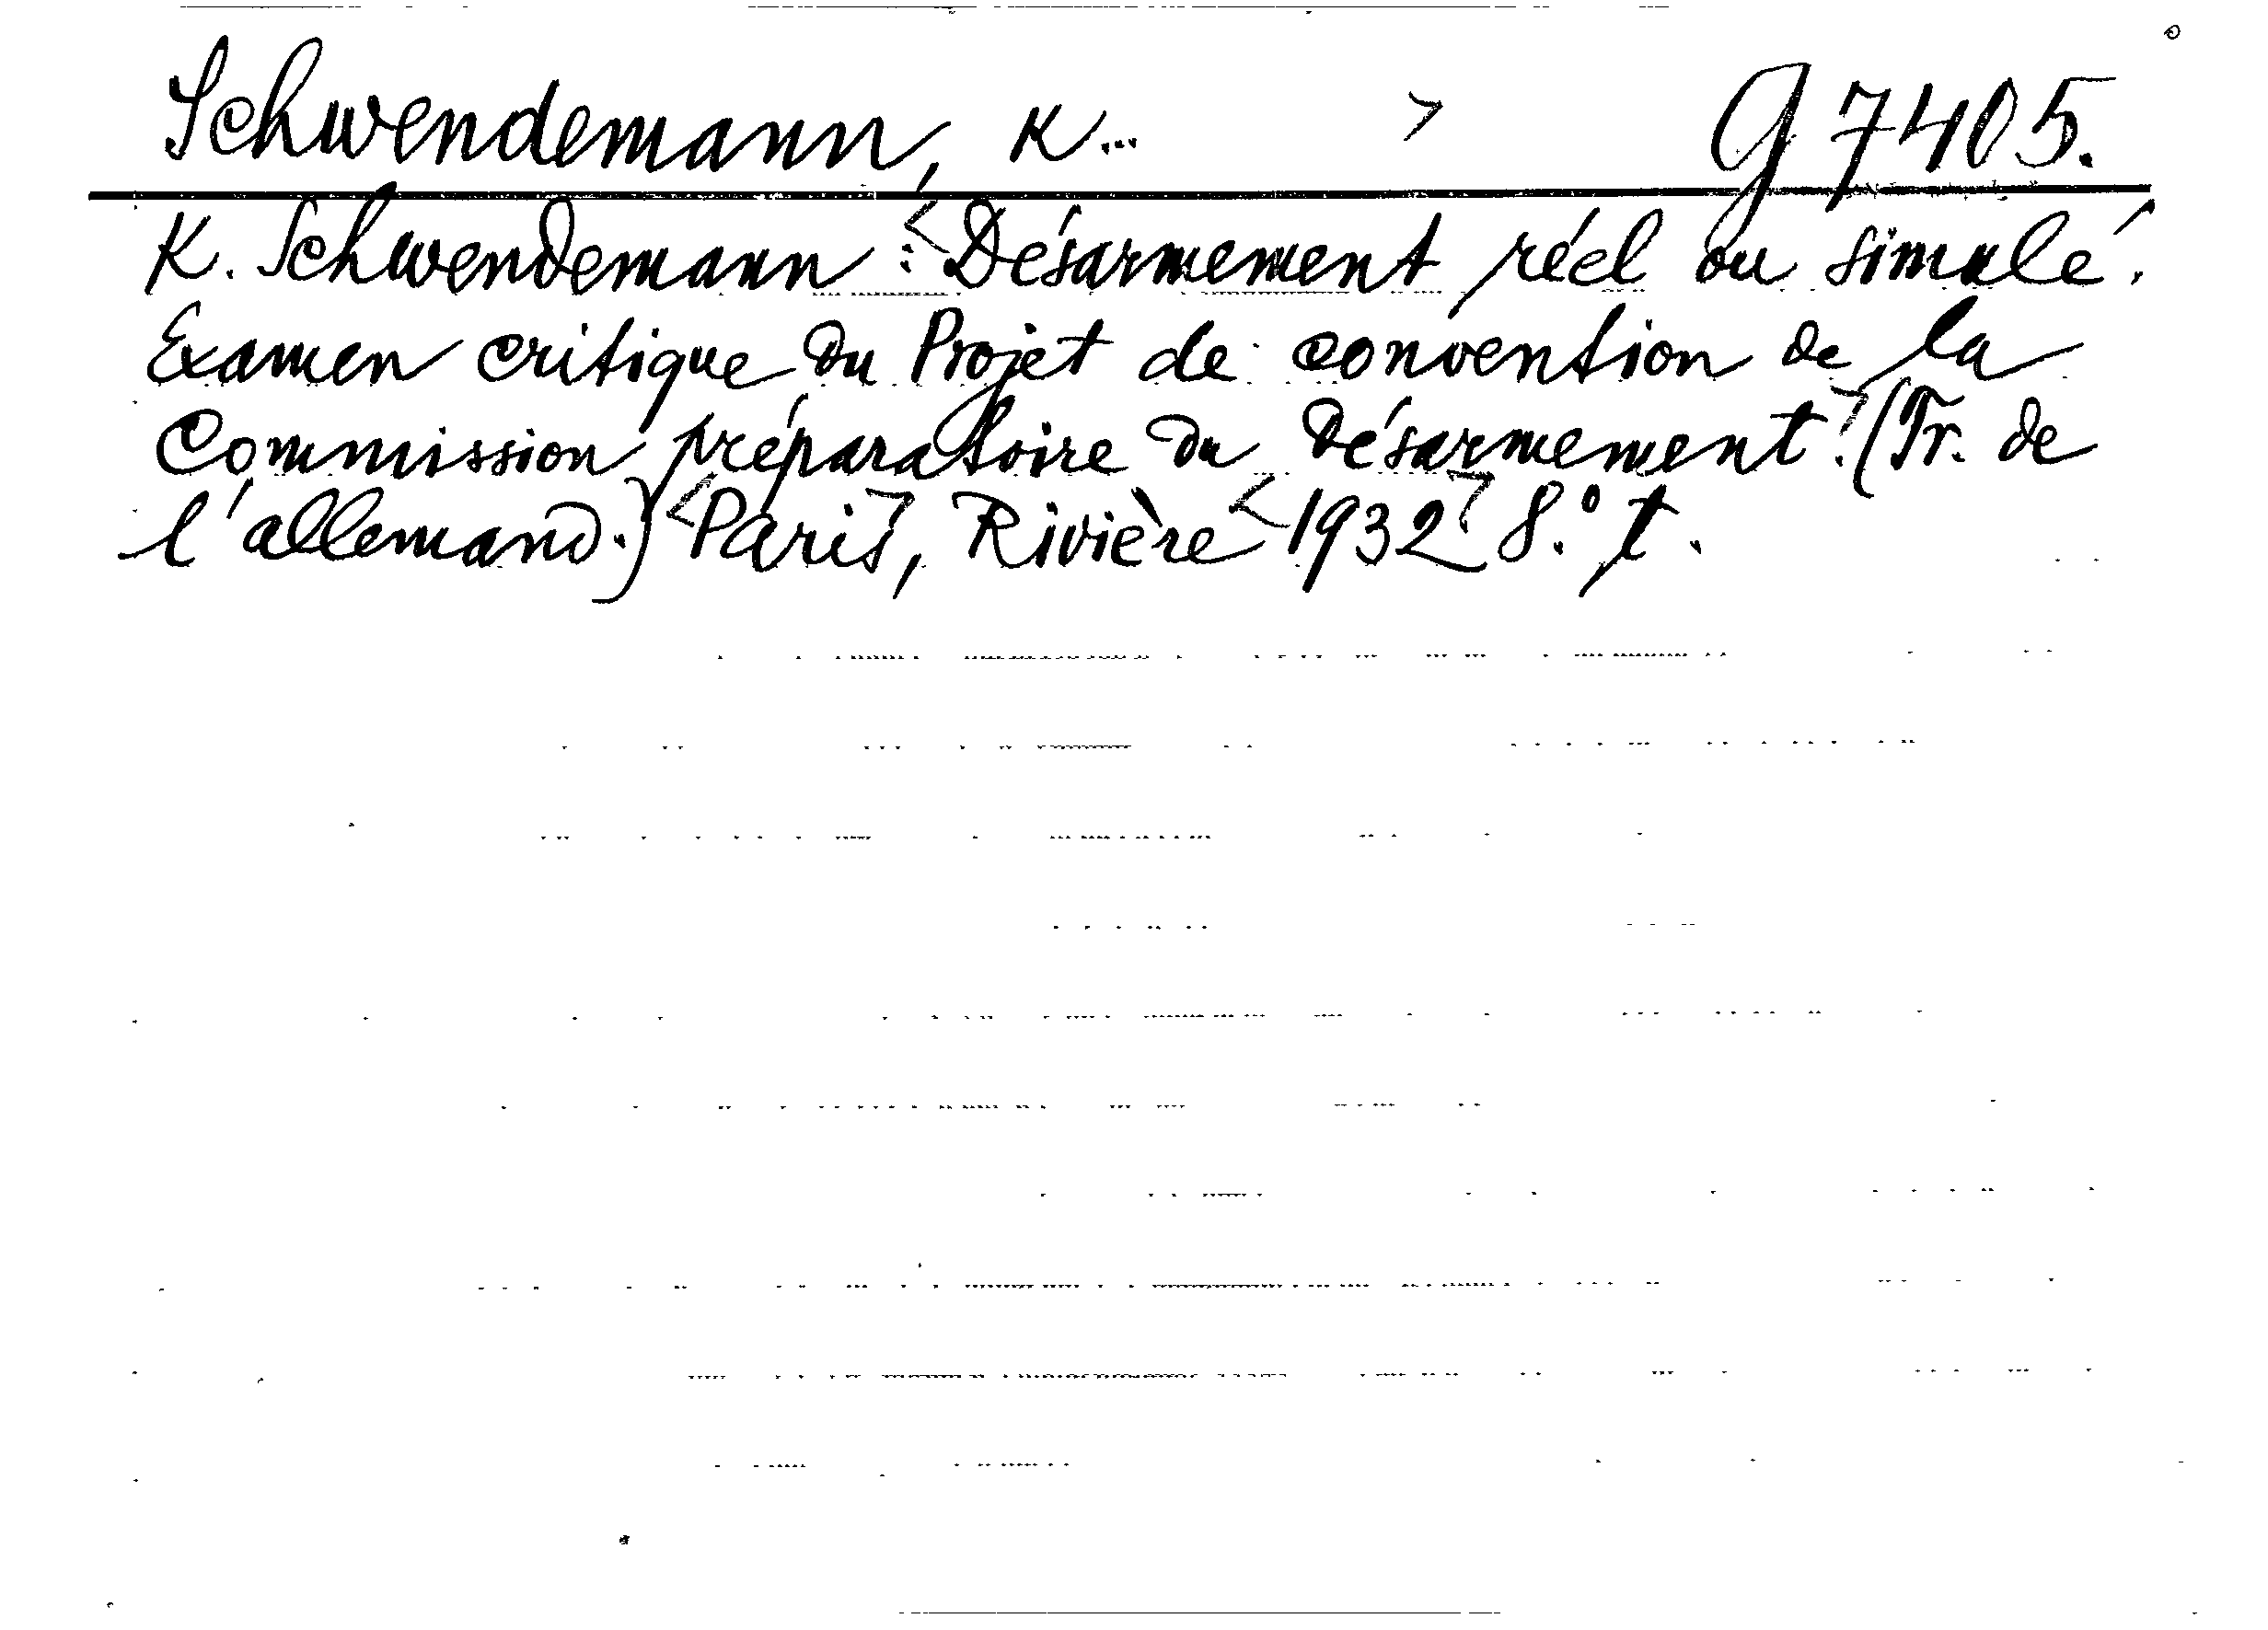 Schwendemann, K... > G 7405.
K. Schwendemann : <Désarmement réel ou simulé.
Examen critique du Projet de convention de la
Commission préparatoire du Désarmement.> (Tr. de
l'allemand.) <Paris>, Rivière <1932> 8.° t.